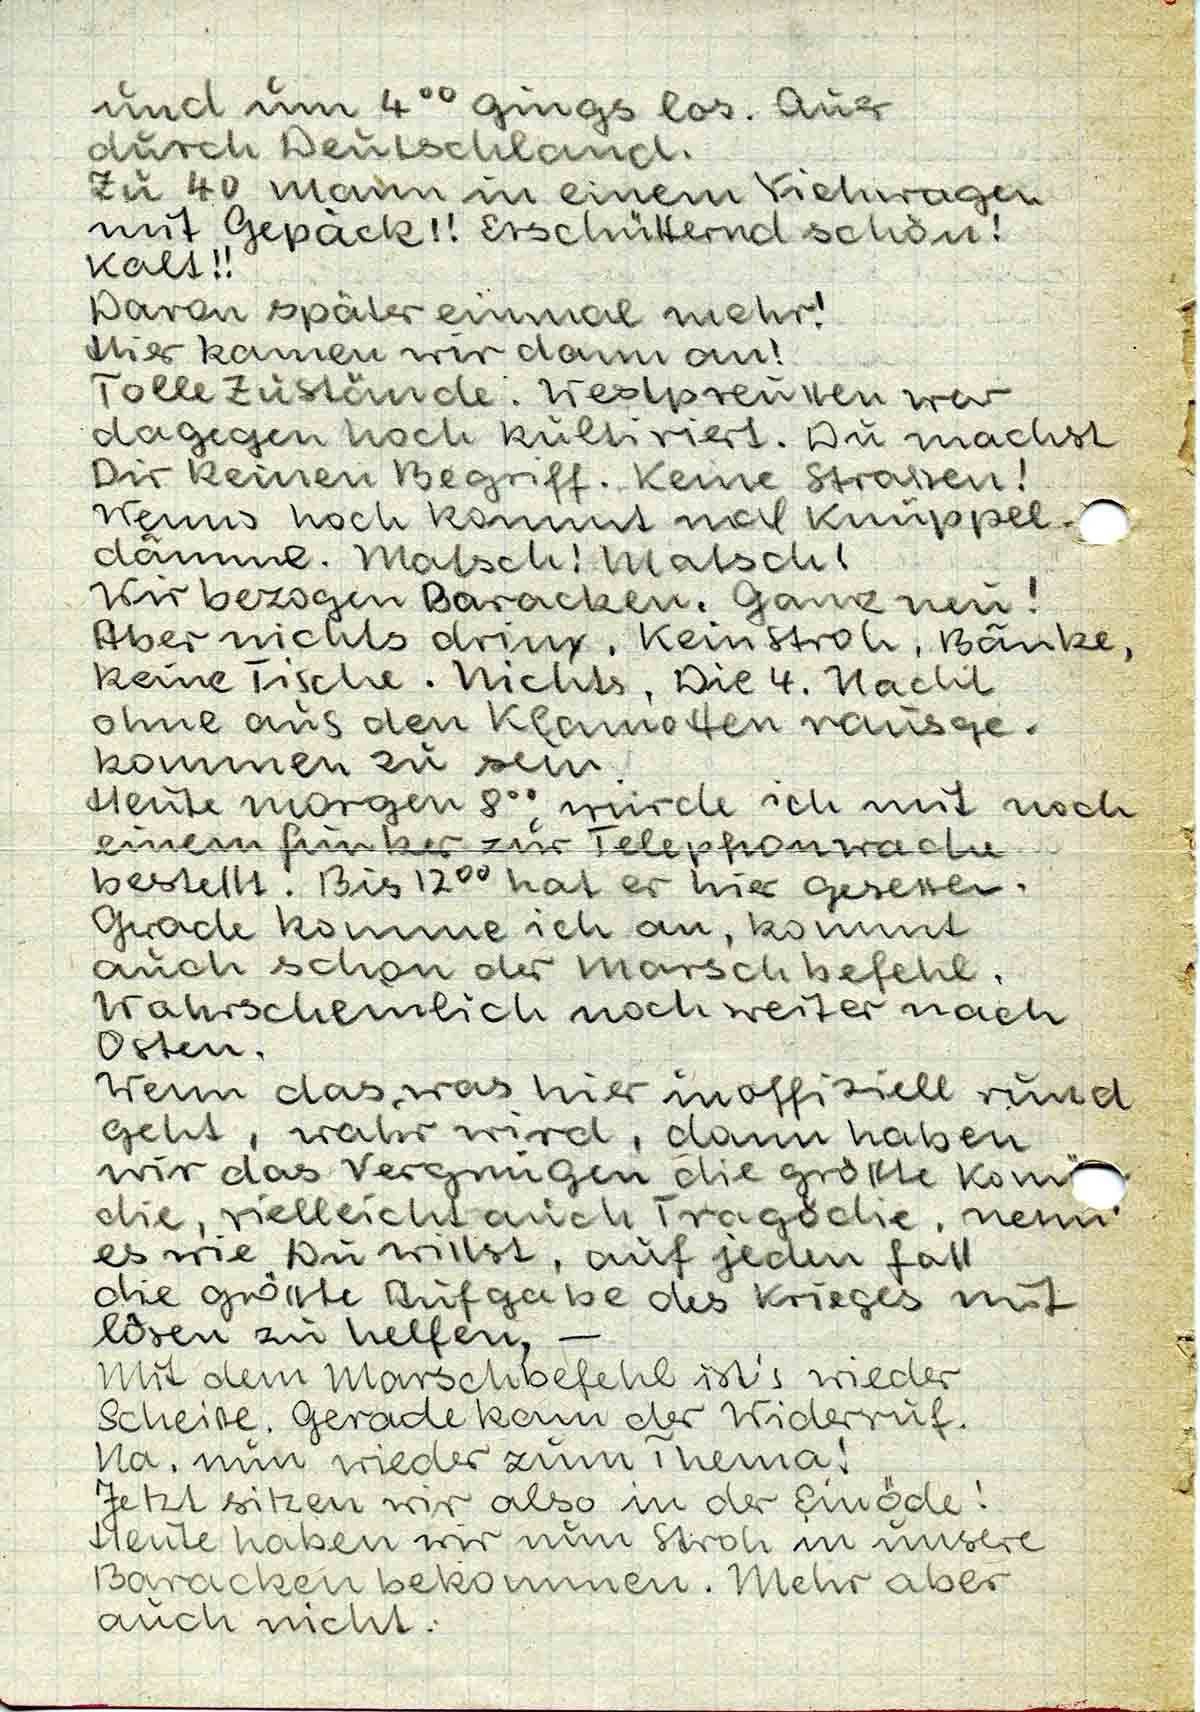 und um 4⁰⁰ gings los. Quer
durch Deutschland.
Zu 40 Mann in einem Viehwagen
mit Gepäck!! Erschütternd schön!
Kalt!!
Davon später einmal mehr!
Hier kamen wir dann an!
Tolle Zustände. Westpreussen war
dagegen hoch kultiviert. Du machst
Dir keinen Begriff. Keine Strassen!
Wenns hoch kommt mal Knüppel-
dämme. Matsch! Matsch!
Wir bezogen Baracken. Ganz neu!
Aber nichts drin. Kein Stroh, Bänke,
keine Tische. Nichts. Die 4. Nacht
ohne aus den Klamotten rausge-
kommen zu sein.
Heute morgen 8⁰⁰ wurde ich mit noch
einem Funker zur Telephonwache
bestellt. Bis 12⁰⁰ hat er hier gesessen.
Gerade komme ich an, kommt
auch schon der Marschbefehl.
Wahrscheinlich noch weiter nach
Osten.
Wenn das, was hier inoffiziell rund
geht, wahr wird, dann haben
wir das Vergnügen die grösste Komö
die, vielleicht auch Tragödie, nenn'
es wie Du willst, auf jeden Fall
die grösste Aufgabe des Krieges mit
lösen zu helfen, —
Mit dem Marschbefehl ist's wieder
Scheisse. Gerade kam der Widerruf.
Na, nun wieder zum Thema!
Jetzt sitzen wir also in der Einöde!
Heute haben wir nun Stroh in unsere
Baracken bekommen. Mehr aber
auch nicht.